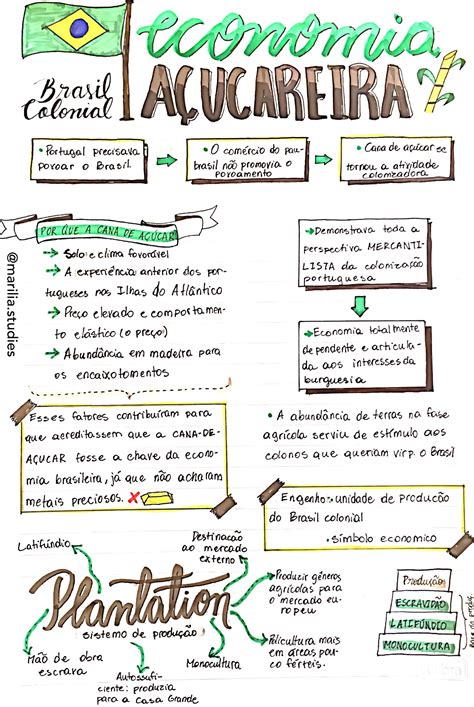 economia
Brasil
Colonial
AÇUCAREIRA
• Portugal precisava
povoar o Brasil.
• O comércio do pau-
brasil não promovia o
povoamento
• Cana de açúcar se
tornou a atividade
colonizadora
@marilia.studies
POR QUE A CANA DE AÇÚCAR
→ Solo e clima favorável
→ A experiência anterior dos por-
tugueses nas Ilhas do Atlântico
→ Preço elevado e comportamen-
to elástico (o preço)
→ Abundância em madeira para
os encaixotamentos
→ Demonstrava toda a
perspectiva MERCANTI-
LISTA da colonização
portuguesa
→ Economia totalmente
dependente e articula-
da aos interesses da
burguesia
Esses fatores contribuíram para
que acreditassem que a CANA-DE-
AÇUCAR fosse a chave da econo-
mia brasileira, já que não acharam
metais preciosos.
• A abundância de terras na fase
agrícola serviu de estímulo aos
colonos que queriam vir p. o Brasil
Engenho: unidade de produção
do Brasil colonial
• símbolo economico
Latifúndio
Destinação
ao mercado
externo
Plantation
sistema de produção
Produzir gêneros
agrícolas para
o mercado eu-
ropeu
Policultura mais
em áreas pou-
co férteis.
Mão de obra
escrava
Autossufi-
ciente: produzia
para a Casa Grande
Monocultura
Produção
ESCRAVIDÃO
LATIFÚNDIO
MONOCULTURA